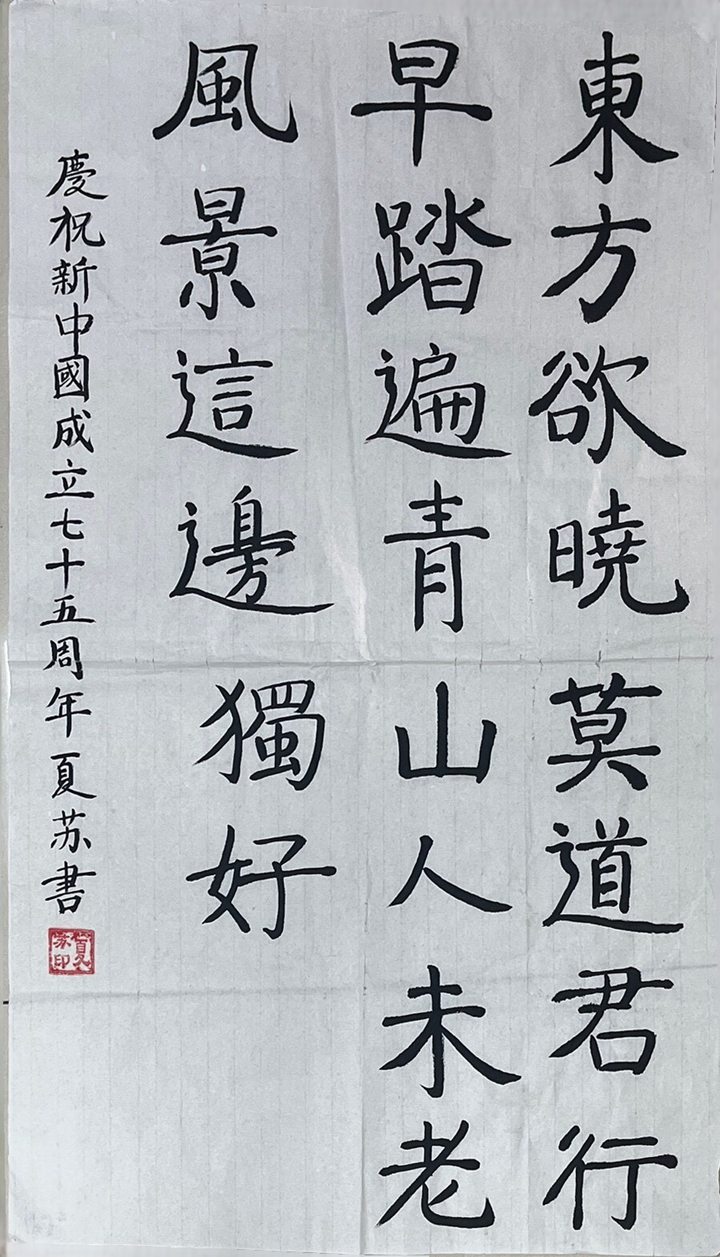 東方欲曉莫道君行
早踏遍青山人未老
風景這邊獨好
慶祝新中國成立七十五周年夏苏書
夏苏印